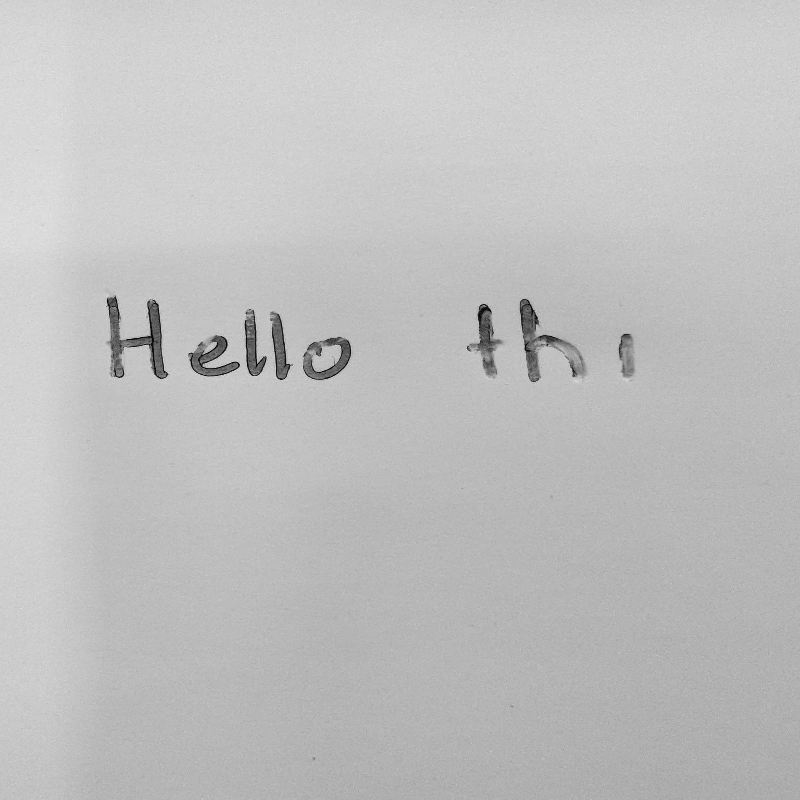 Hello thi